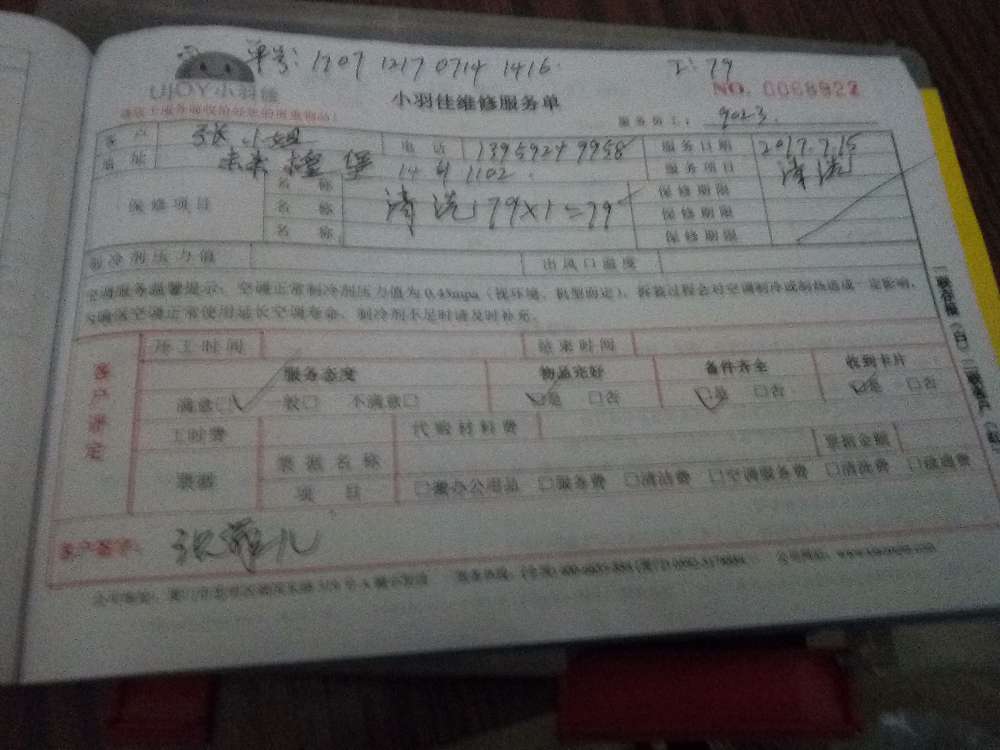 单号：1707 1217 0714 1416 工：79
UJOY小羽佳 小羽佳维修服务单 NO. 0068922
服务员工： 9023
客户 张小姐 电话 13959249958 服务日期 2017.7.15
地址 未来橙堡 14 1102 服务项目 清洗
保修项目 名称 清洗 79×1=79 保修期限
名称 保修期限
名称 保修期限
制冷剂压力值 出风口温度
空调服务温馨提示：空调正常制冷剂压力值为0.45mpa（视环境、机型而定），拆装过程会对空调制冷或制热造成一定影响，
空调正常使用延长空调寿命，制冷剂不足时请及时补充。
客户评定 开工时间 结束时间
服务态度 物品完好 备件齐全 收到卡片
满意□ 一般□ 不满意□ □是 □否 □是 □否 □是 □否
工时费 代购材料费
票据 票据名称 票据金额
项目 □办公用品 □服务费 □清洁费 □空调服务费 □清洗费 □疏通费
客户签字：